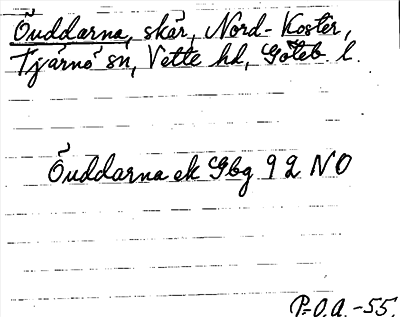 Öuddarna, skär, Nord-Koster,
Tjärnö sn, Vette hd, Göteb. l.
Öuddarna ek Gbg 9 2 NO
P-O.A.-55.